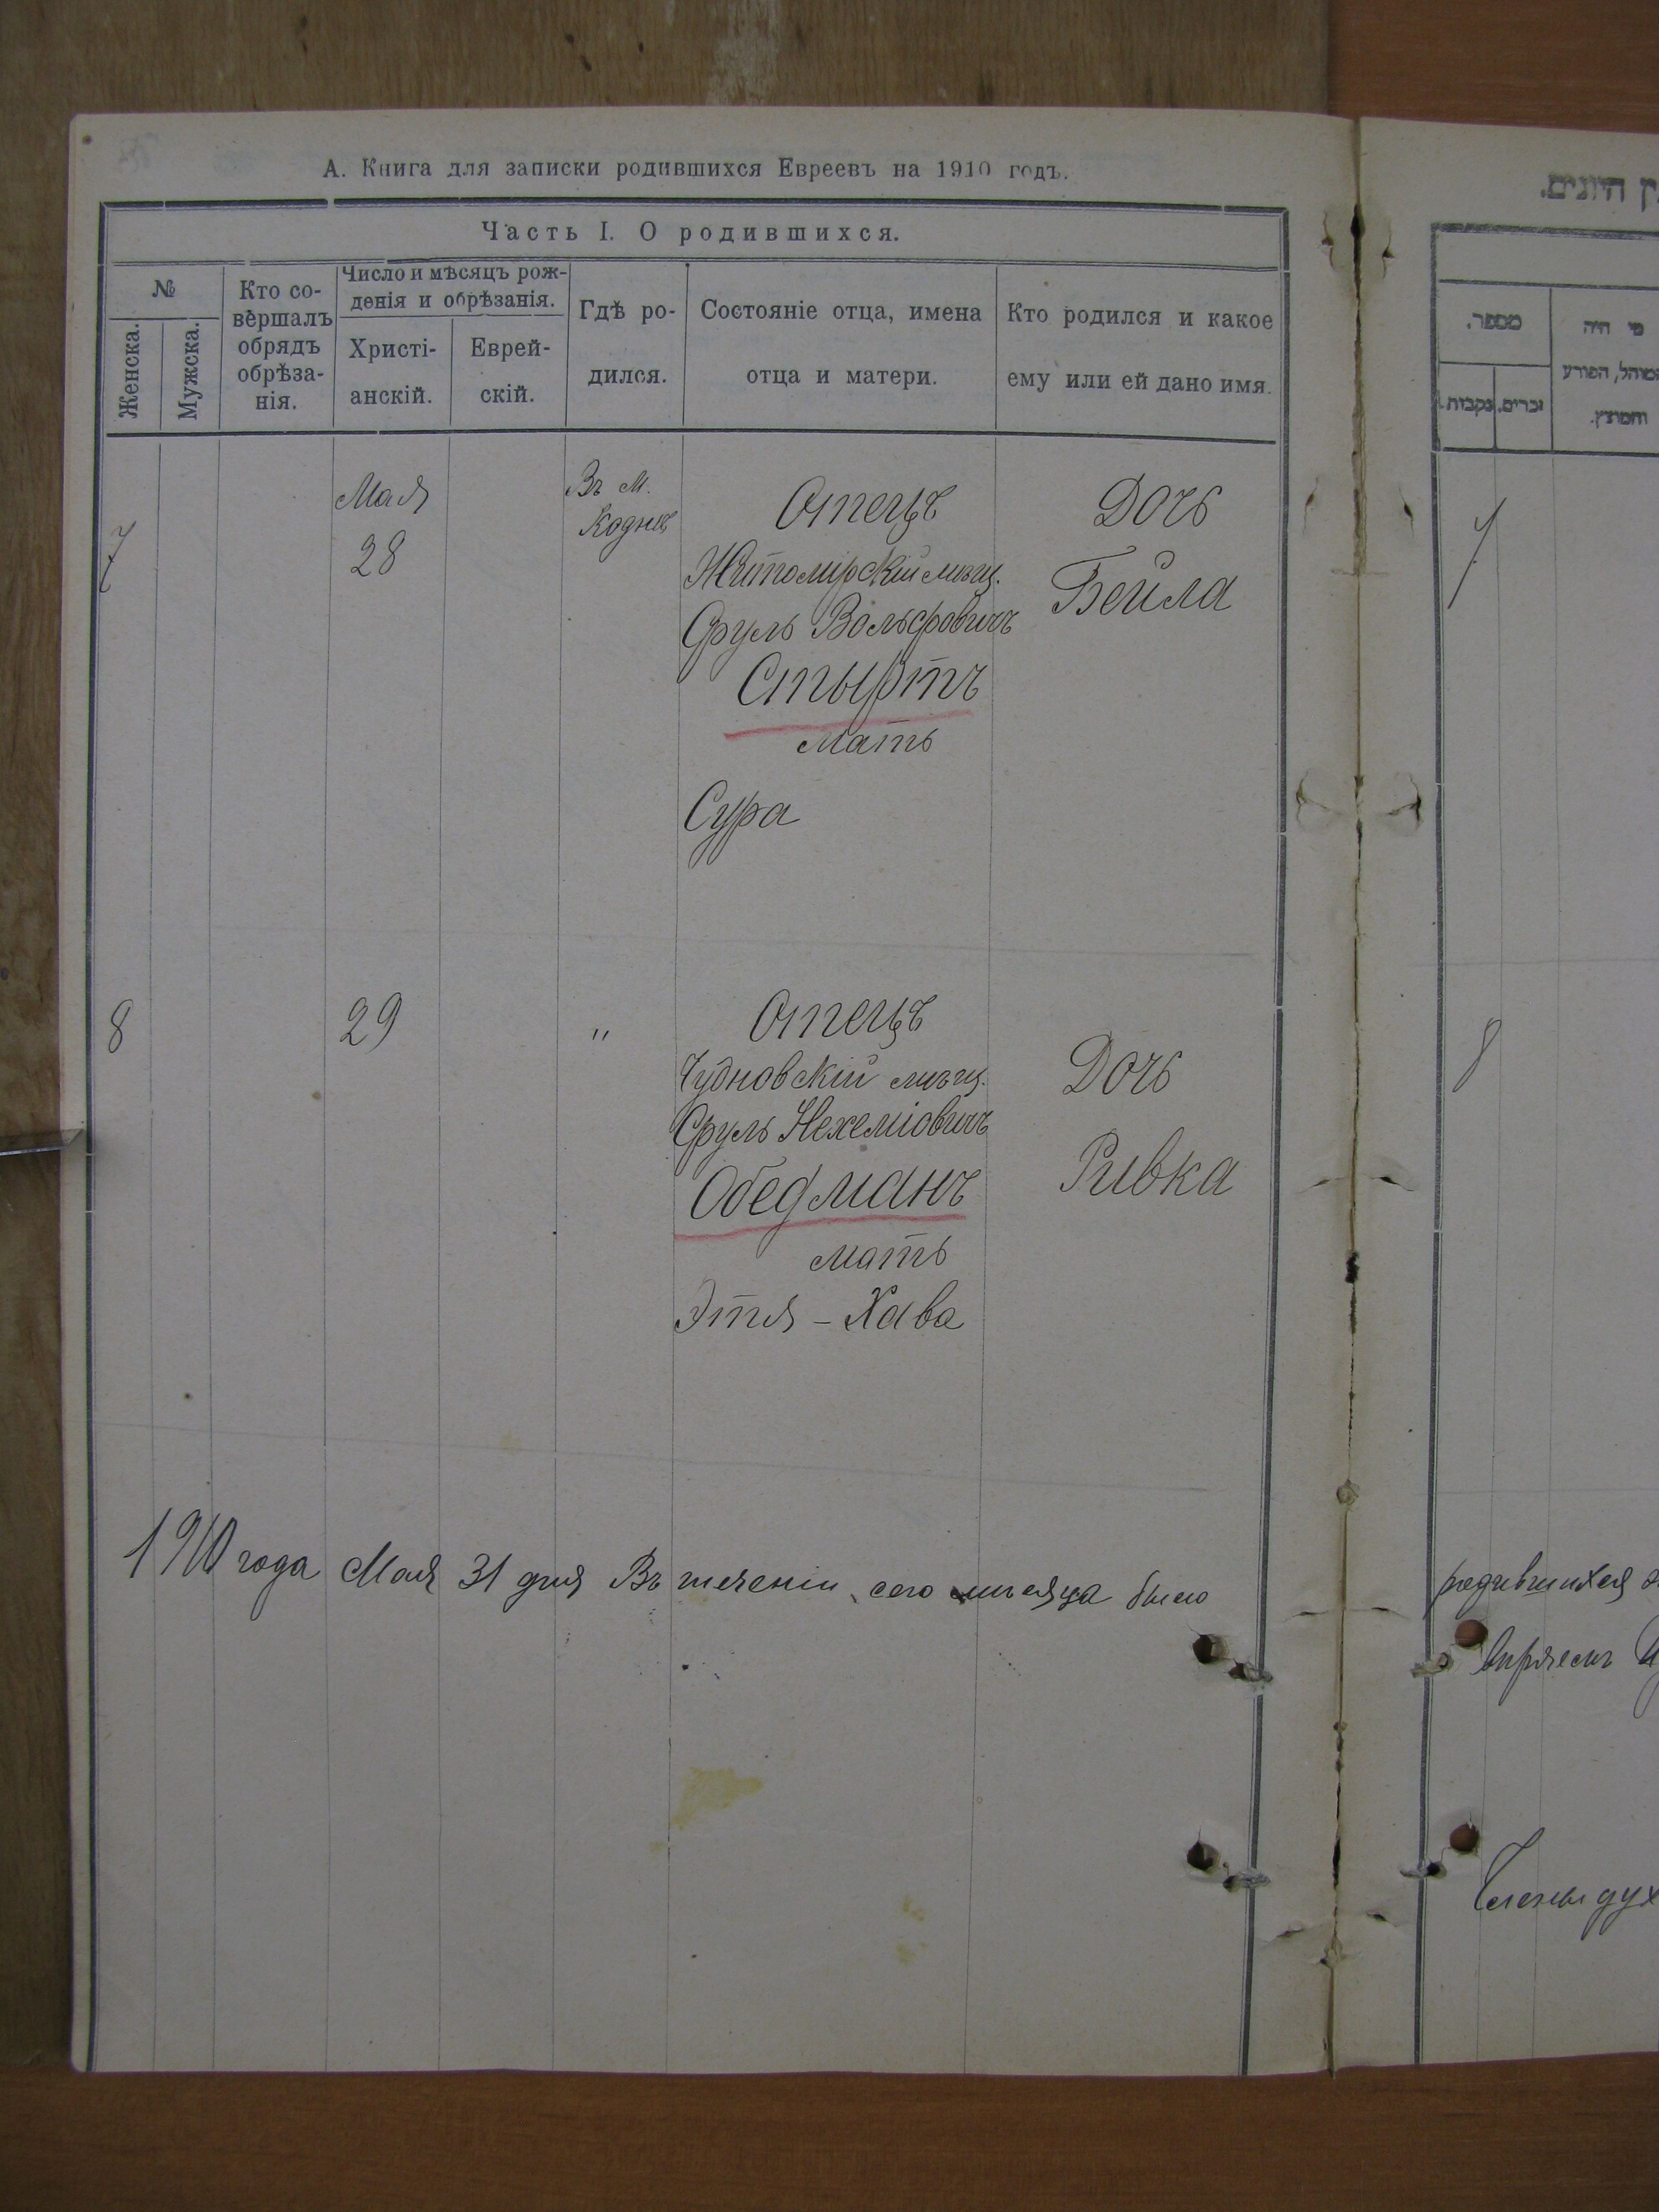 А. Книга для записки родившихся Евреевъ на 1910 годъ.
Часть I. О родившихся.
№
Женска.
Мужска.
Кто со-
вершалъ
обрядъ
обрѣза-
нія.
Число и мѣсяцъ рож-
денія и обрѣзанія.
Христі-
анскій.
Еврей-
скій.
Гдѣ ро-
дился.
Состояніе отца, имена
отца и матери.
Кто родился и какое
ему или ей дано имя.
7
Мая
28
Въ м.
Кодне
Отецъ
Житомірскій мѣщ.
Сруль Вольфовичъ
Стыртъ
мать
Сура
Дочь
Бейла
8
29
"
Отецъ
Чудновскій мѣщ.
Сруль Нехеміовичъ
Обедманъ
мать
Этля - Хава
Дочь
Ривка
1910 года Мая 31 дня Въ теченіи сего мѣсяца было
מספר.
נקבות
זכרים.
מי היה
המוהל, הפורע
והמוצץ.
7
8
родившихся